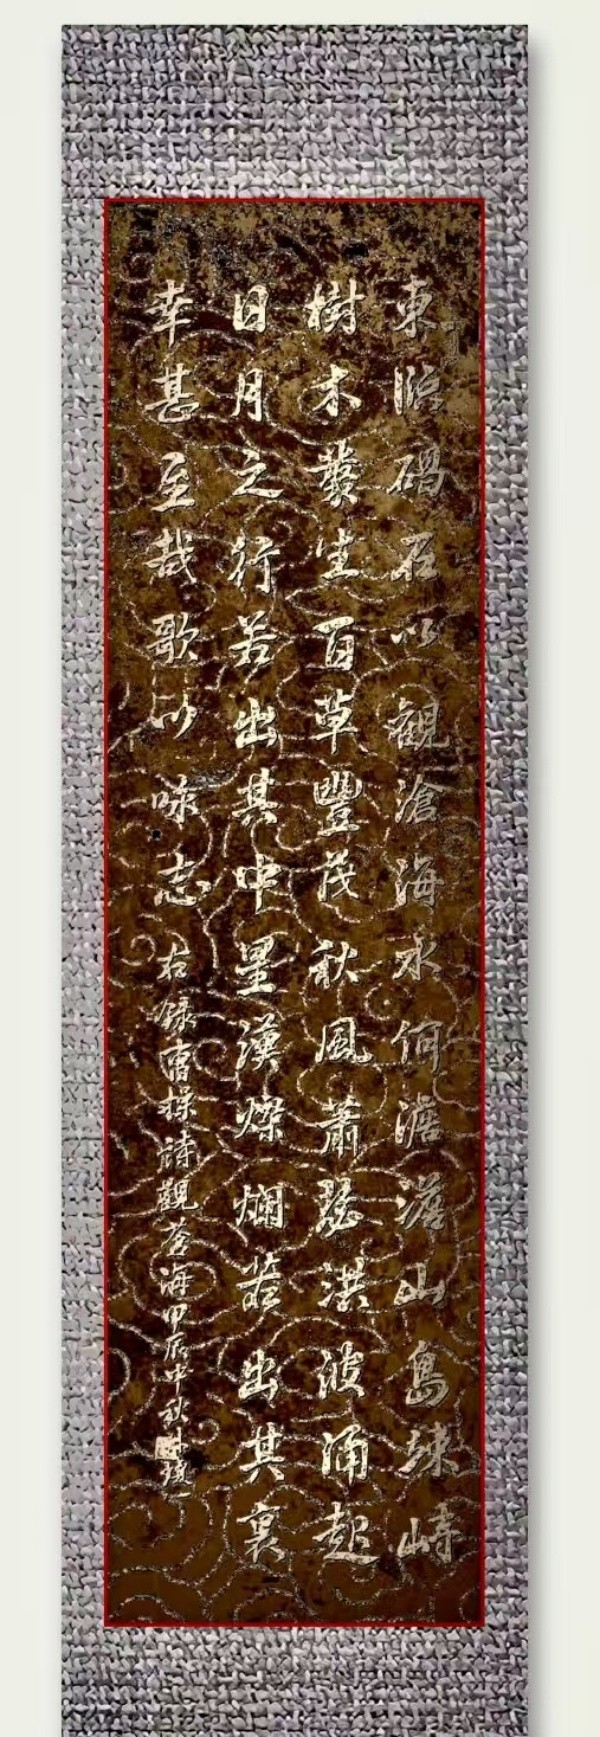 東臨碣石以觀滄海水何澹澹山島竦峙
樹木叢生百草豐茂秋風蕭瑟洪波涌起
日月之行若出其中星漢燦爛若出其裏
幸甚至哉歌以咏志 右録曹操詩觀蒼海甲辰中秋